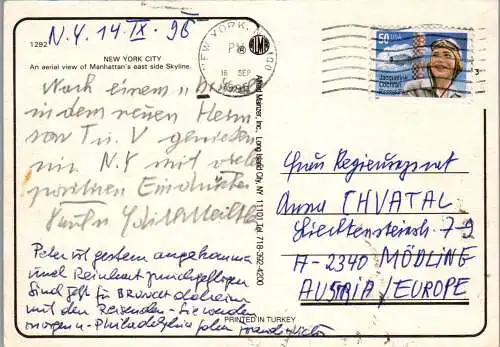 N.Y. 14. IX. 96
1292
NEW YORK CITY
An aerial view of Manhattan's east side Skyline.
Nach einem
in dem neuen Heim
von T. u. V genießen
wir N.Y mit viele
positiven Eindrücken
Peter ist gestern angekommen
und Reinhart zurückgeflogen
Sind jetzt für BRUNCH daheim
mit den Reisenden - Sie werden
morgen n. Philadelphia fahren
Alfred Mainzer, Inc., Long Island City, NY 11101 Tel. 718-392-4200
PRINTED IN TURKEY
NEW YORK, NY 100
PM
16 SEP
1996
50 USA
Jacqueline
Cochran
Pioneer Pilot
Frau Regierungsrat
Anna CHVATAL
Liechtensteinstr 7-9
A-2340 MÖDLING
AUSTRIA/EUROPE